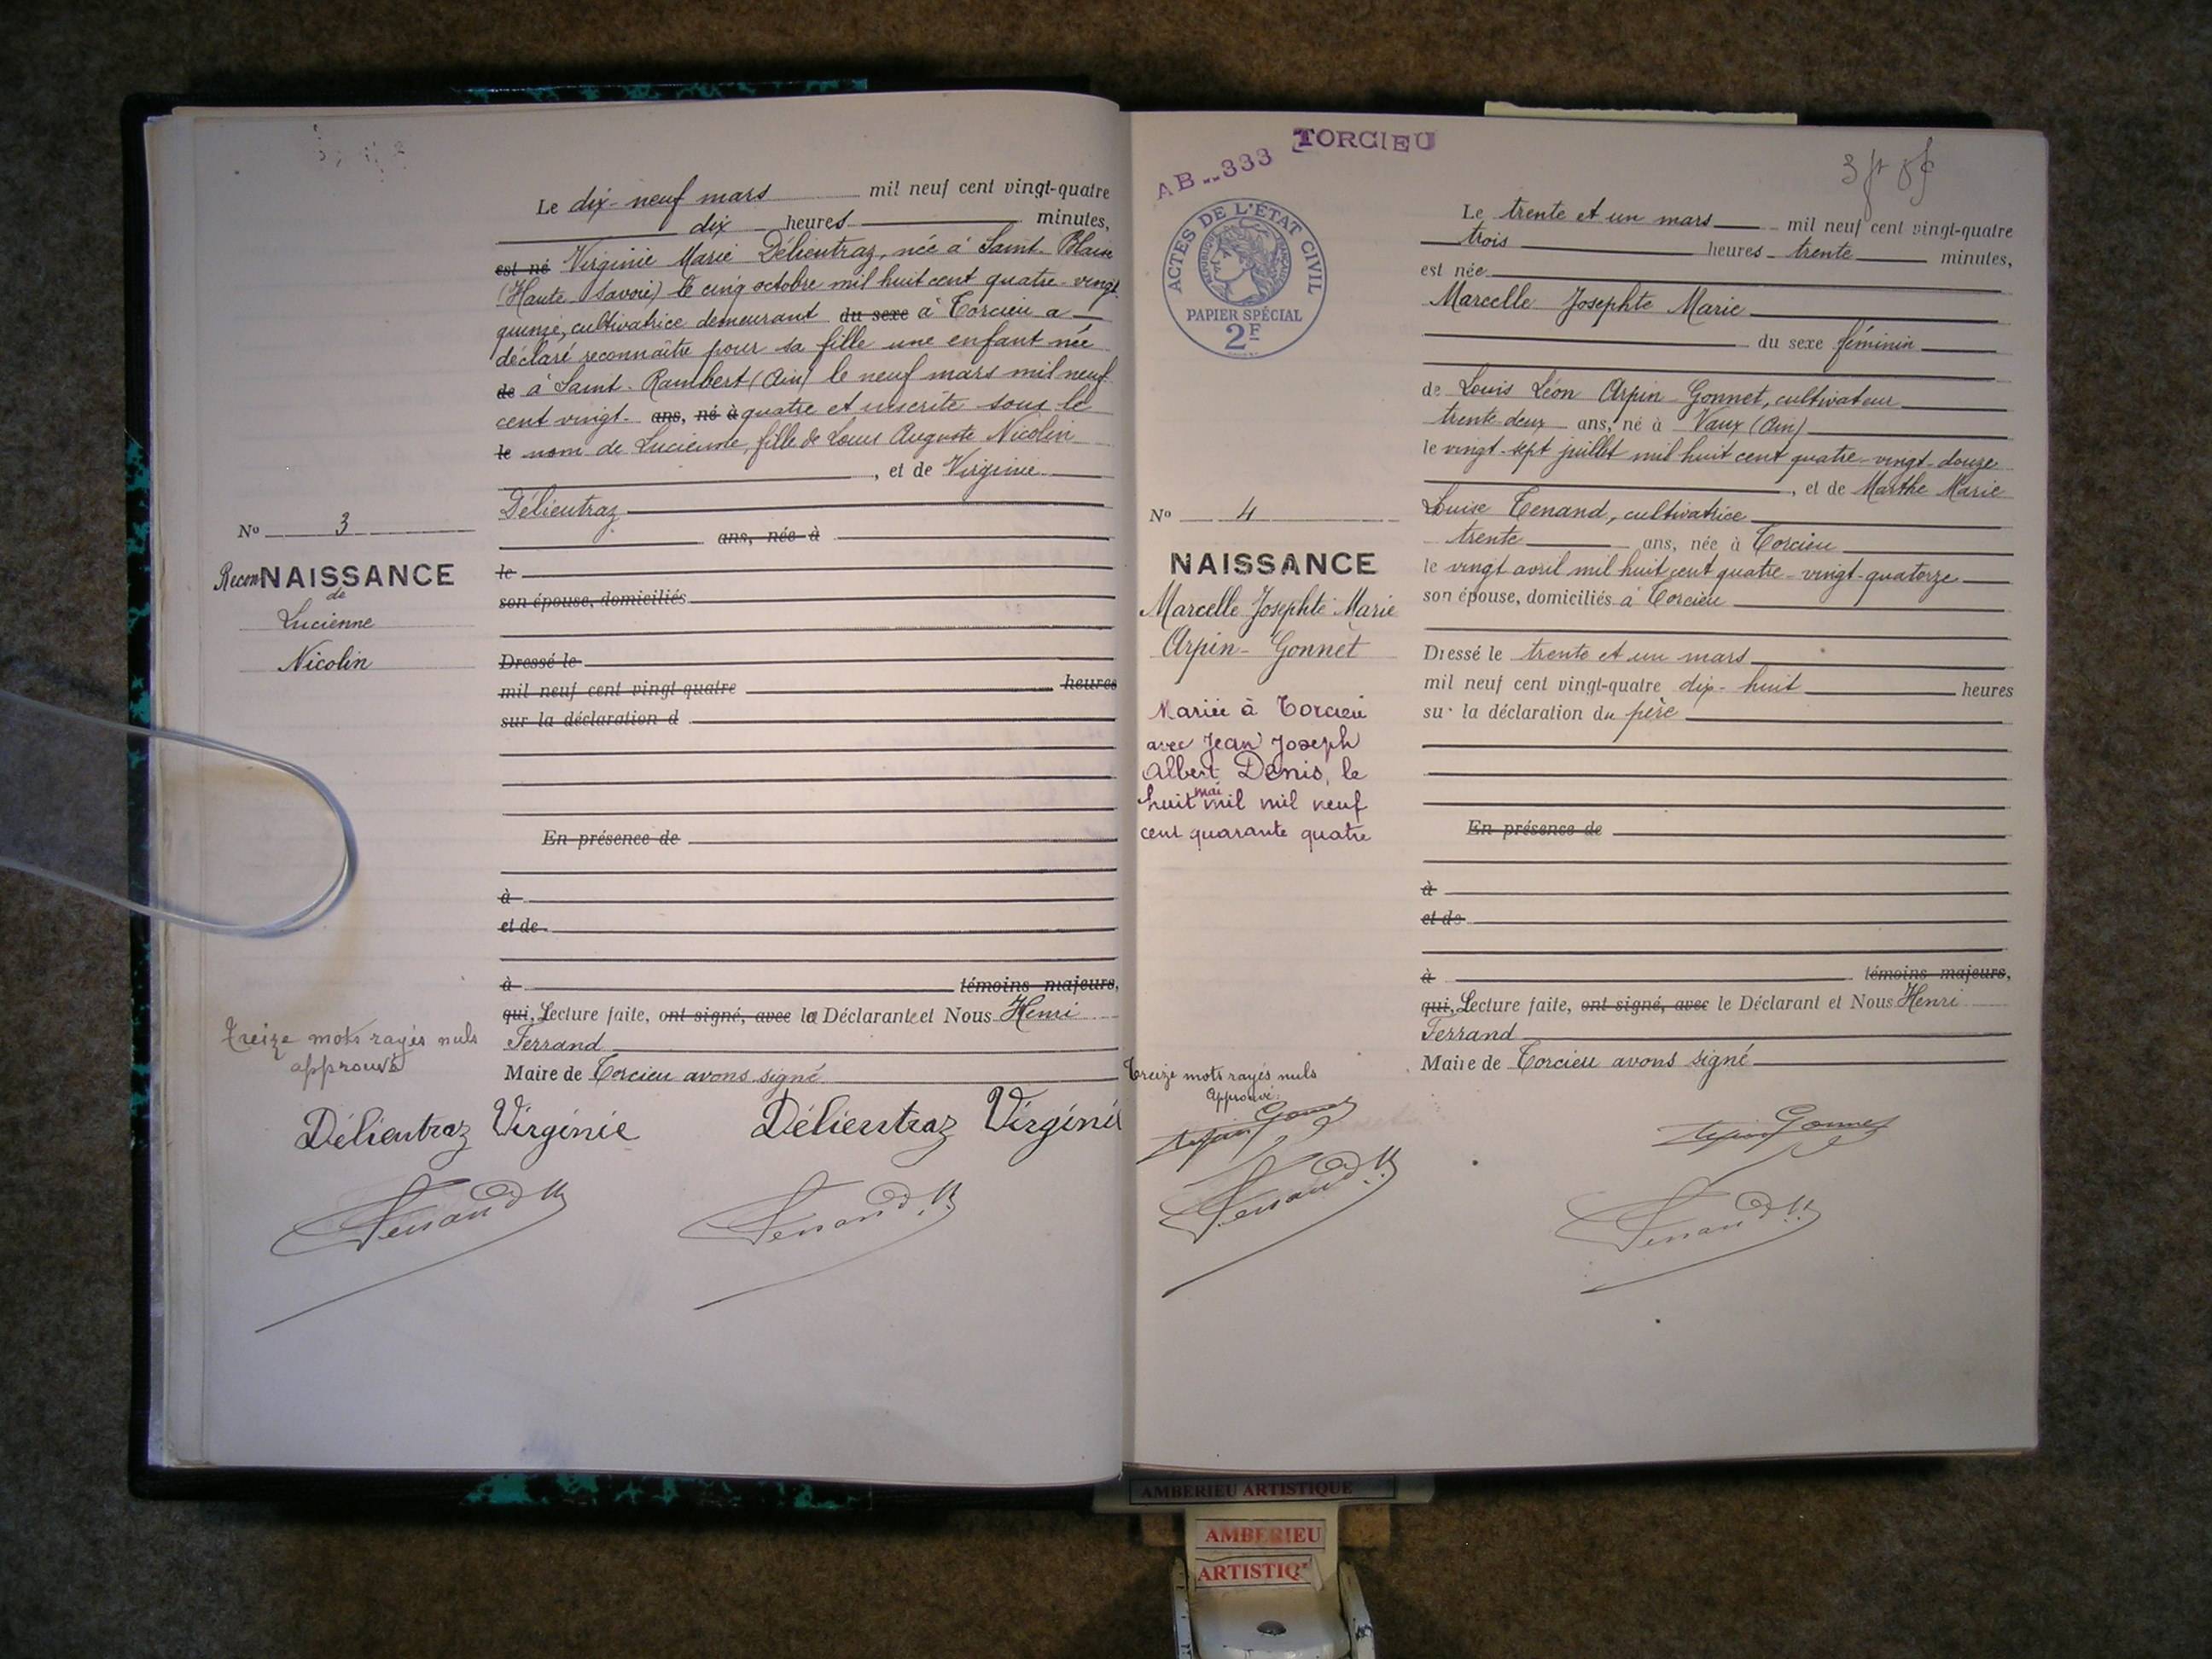 Le dix-neuf mars mil neuf cent vingt-quatre
dix heures minutes,
est né Virginie Marie Délientraz, née à Saint-Blaise
(Haute Savoie) le cinq octobre mil huit cent quatre-vingt
quinze, cultivatrice demeurant du sexe à Torcieu a
déclaré reconnaître pour sa fille une enfant née
de à Saint-Rambert (Ain) le neuf mars mil neuf
cent vingt- ans, né à quatre et inscrite sous le
le nom de Lucienne, fille de Louis Auguste Nicolin
, et de Virginie
Délientraz
ans, née à
le
son épouse, domiciliés
Dressé le
mil neuf cent vingt-quatre heures
sur la déclaration d
En présence de
à
et de
à témoins majeurs,
qui, Lecture faite, ont signé, avec la Déclarante et Nous Henri
Ferrand
Maire de Torcieu avons signé
No 3
ReconNAISSANCE
de
Lucienne
Nicolin
Treize mots rayés nuls
approuvé
Délientraz Virginie Délientraz Virginie
Ferrand Ferrand
TORCIEU
AB..333
ACTES DE L'ÉTAT CIVIL
RÉPUBLIQUE FRANÇAISE
PAPIER SPÉCIAL
2F
Le trente et un mars mil neuf cent vingt-quatre
trois heures trente minutes,
est née
Marcelle Josephte Marie
du sexe féminin
de Louis Léon Arpin-Gonnet, cultivateur
trente-deux ans, né à Vaux (Ain)
le vingt-sept juillet mil huit cent quatre-vingt-douze
, et de Marthe Marie
Louise Tenand, cultivatrice
trente ans, née à Torcieu
le vingt avril mil huit cent quatre-vingt-quatorze
son épouse, domiciliés à Torcieu
Dressé le trente et un mars
mil neuf cent vingt-quatre dix-huit heures
sur la déclaration du père
En présence de
à
et de
à témoins majeurs,
qui, Lecture faite, ont signé, avec le Déclarant et Nous Henri
Ferrand
Maire de Torcieu avons signé
No 4
NAISSANCE
Marcelle Josephte Marie
Arpin-Gonnet
Mariée à Torcieu
avec Jean Joseph
Albert Denis, le
huit mai mil mil neuf
cent quarante quatre
Treize mots rayés nuls
Approuvé.
Arpin Gonnet Arpin Gonnet
Ferrand Ferrand
AMBERIEU ARTISTIQUE
AMBERIEU
ARTISTIQ